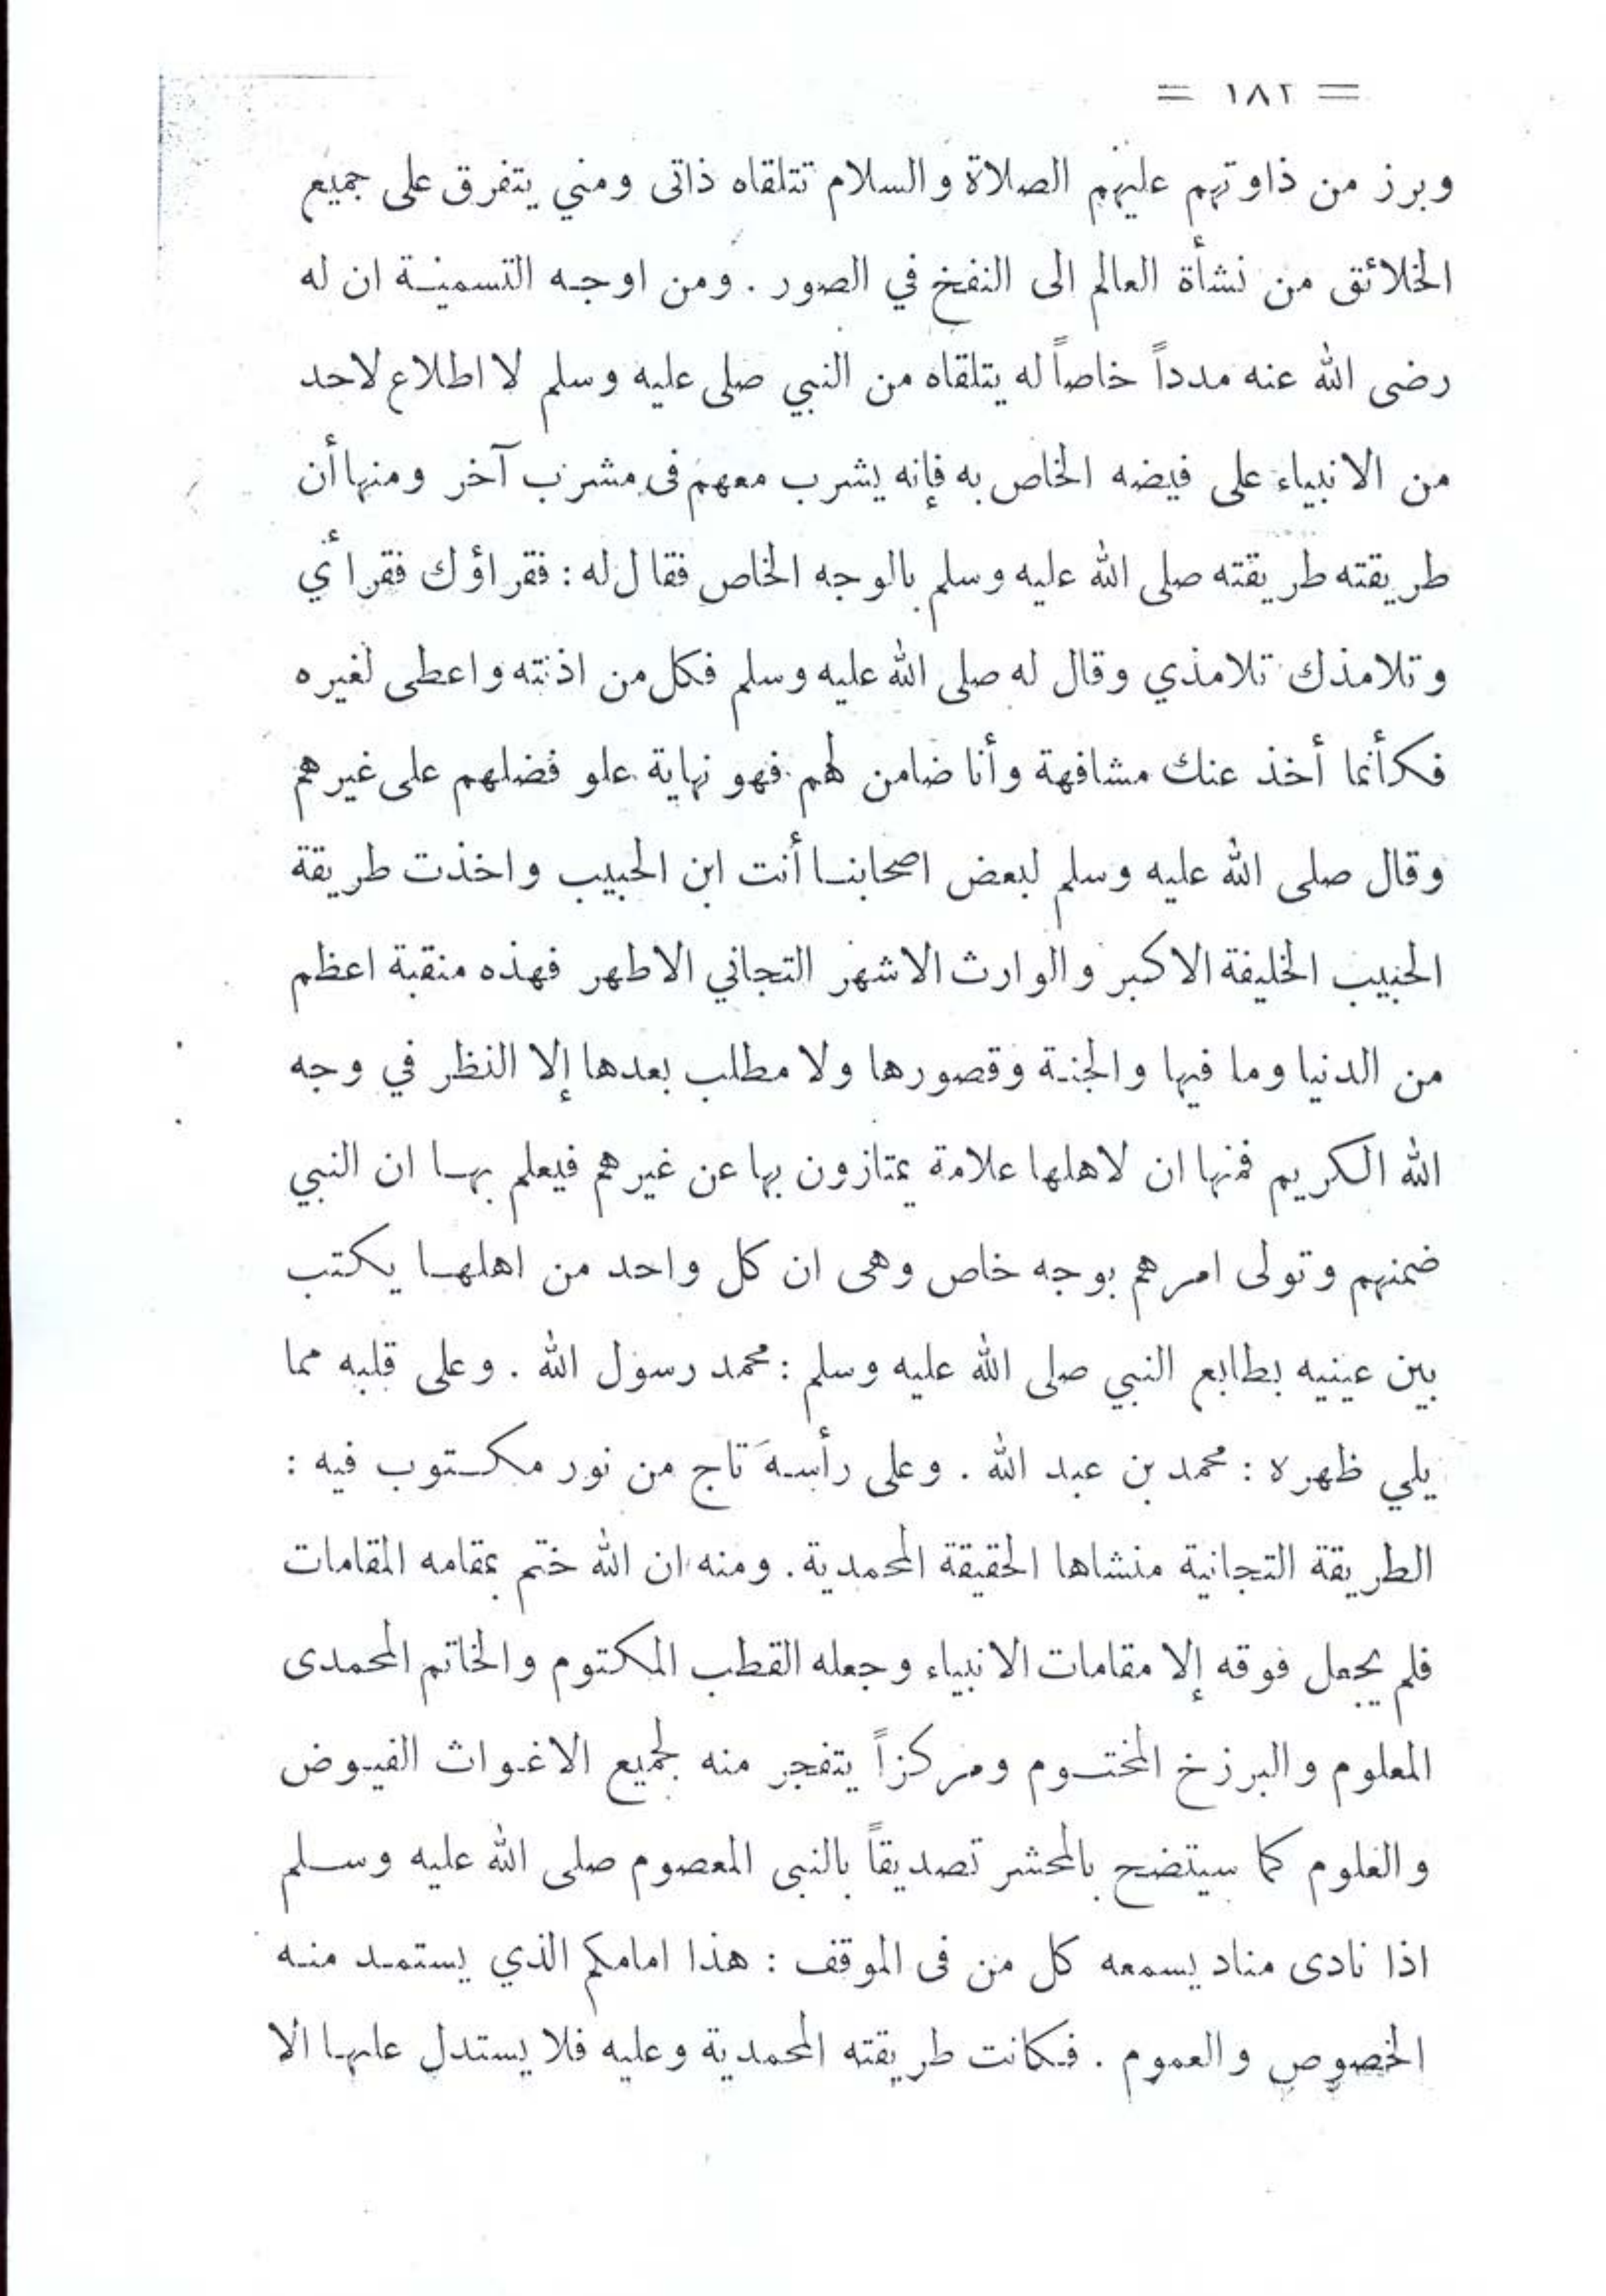 = ١٨٢ =
وبرز من ذاوتهم عليهم الصلاة والسلام تتلقاه ذاتى ومني يتفرق على جميع
الخلائق من نشأة العالم الى النفخ في الصور . ومن اوجه التسمية ان له
رضى الله عنه مدداً خاصاً له يتلقاه من النبي صلى عليه وسلم لا اطلاع لاحد
من الانبياء على فيضه الخاص به فإنه يشرب معهم فى مشرب آخر ومنها أن
طريقته طريقته صلى الله عليه وسلم بالوجه الخاص فقال له : فقراؤك فقرائي
وتلامذك تلامذي وقال له صلى الله عليه وسلم فكل من اذنته واعطى لغيره
فكأنما أخذ عنك مشافهة وأنا ضامن لهم فهو نهاية علو فضلهم على غيرهم
وقال صلى الله عليه وسلم لبعض اصحابنا أنت ابن الحبيب واخذت طريقة
الحبيب الخليفة الاكبر والوارث الاشهر التجاني الاطهر فهذه منقبة اعظم
من الدنيا وما فيها والجنة وقصورها ولا مطلب بعدها إلا النظر في وجه
الله الكريم فمنها ان لاهلها علامة يمتازون بها عن غيرهم فيعلم بها ان النبي
ضمنهم وتولى امرهم بوجه خاص وهى ان كل واحد من اهلها يكتب
بين عينيه بطابع النبي صلى الله عليه وسلم : محمد رسول الله . وعلى قلبه مما
يلي ظهره : محمد بن عبد الله . وعلى رأسه تاج من نور مكتوب فيه :
الطريقة التجانية منشاها الحقيقة المحمدية . ومنه ان الله ختم بمقامه المقامات
فلم يجعل فوقه إلا مقامات الانبياء وجعله القطب المكتوم والخاتم المحمدى
المعلوم والبرزخ المختوم ومركزاً يتفجر منه لجميع الاغواث الفيوض
والعلوم كما سيتضح بالمحشر تصديقاً بالنبى المعصوم صلى الله عليه وسلم
اذا نادى مناد يسمعه كل من فى الموقف : هذا امامكم الذي يستمد منه
الخصوص والعموم . فكانت طريقته المحمدية وعليه فلا يستدل عليها الا